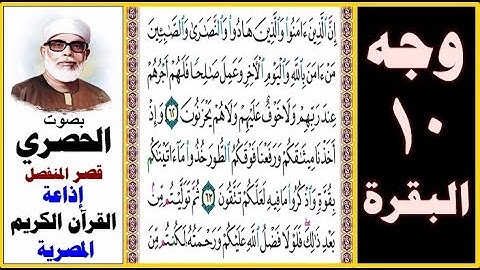 وجه
١٠
البقرة
إِنَّ ٱلَّذِينَ ءَامَنُوا۟ وَٱلَّذِينَ هَادُوا۟ وَٱلنَّصَـٰرَىٰ وَٱلصَّـٰبِـِٔينَ
مَنْ ءَامَنَ بِٱللَّهِ وَٱلْيَوْمِ ٱلْـَٔاخِرِ وَعَمِلَ صَـٰلِحًا فَلَهُمْ أَجْرُهُمْ
عِندَ رَبِّهِمْ وَلَا خَوْفٌ عَلَيْهِمْ وَلَا هُمْ يَحْزَنُونَ ٦٢ وَإِذْ
أَخَذْنَا مِيثَـٰقَكُمْ وَرَفَعْنَا فَوْقَكُمُ ٱلطُّورَ خُذُوا۟ مَآ ءَاتَيْنَـٰكُم
بِقُوَّةٍ وَٱذْكُرُوا۟ مَا فِيهِ لَعَلَّكُمْ تَتَّقُونَ ٦٣ ثُمَّ تَوَلَّيْتُم مِّنۢ
بَعْدِ ذَٰلِكَ فَلَوْلَا فَضْلُ ٱللَّهِ عَلَيْكُمْ وَرَحْمَتُهُۥ لَكُنتُم مِّنَ
بصوت
الحصري
قصر المنفصل
إذاعة
القرآن الكريم
المصرية